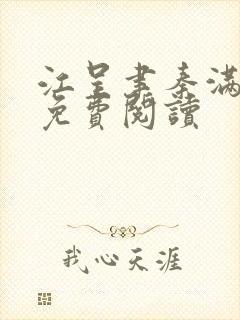 江呈書秦滿
免費閱讀
我心天涯